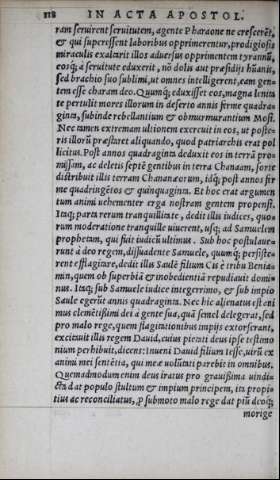 118 IN ACTA APOSTOL.
ram seruirent seruitutem, agente Pharaone ne cresceret,
& qui superessent laboribus opprimerentur, prodigiosis
miraculis exalauit illos aduersus opprimentem tyrannũ,
eosq; à seruitute eduxerit, nõ dolis aut præsidijs hũanis,
sed brachio suo sublimi, ut omnes intelligerent, eam gen-
tem esse charam deo. Quumq; eduxisset eos, magna lenita
te pertulit mores illorum in deserto annis ferme quadra-
ginta, subinde rebellantium & obmurmurantium Mosi.
Nec tamen extremam ultionem exercuit in eos, ut poste-
ris illorũ præstaret aliquando, quod patriarchis erat pol
licitus. Post annos quadraginta deduxit eos in terrã pro-
missam, ac deletis septẽ gentibus in terra Chanaam, sorte
distribuit illis terram Chananæorum, idq; post annos fer
me quadringẽtos & quinquaginta. Et hoc erat argumen
tum animi uehementer erga nostram gentem propensi.
Itaq; parta rerum tranquillitate, dedit illis iudices, quo-
rum moderatione tranquille uiuerent, usq; ad Samuelem
prophetam, qui fuit iudicũ ultimus. Sub hoc postulaue-
runt à deo regem, dissuadente Samuele, quumq; persiste-
rent efflagitare, dedit illis Saulẽ filium Cis è tribu Benia-
min, quem ob superbiã & inobedientiã repudiauit domi-
nus. Itaq; sub Samuele iudice integerrimo, & sub impio
Saule egerũt annis quadraginta. Nec hic alienatus est ani
mus clemẽtissimi dei à gente sua, quã semel delegerat, sed
pro malo rege, quem flagitationibus impijs extorserant,
excitauit illis regem Dauid, cuius pietati deus ipse testimo
nium perhibuit, dicens: Inueni Dauid filium Iesse, uirũ ex
animi mei sentẽtia, qui meæ uolũtati parebit in omnibus.
Quemadmodum enim deus iratus pro grauissima uindi-
cta dat populo stultum & impium principem, ita propi-
tius ac reconciliatus, ꝓ submoto malo rege dat piũ deoq;
morige